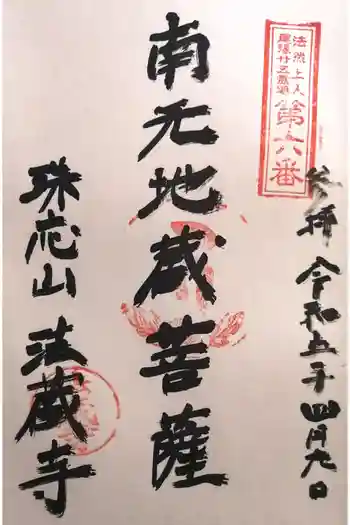 法然上人
尾張廿五霊場
第十六番
参拝 令和五年四月九日
南无地蔵菩薩
珠応山 法蔵寺